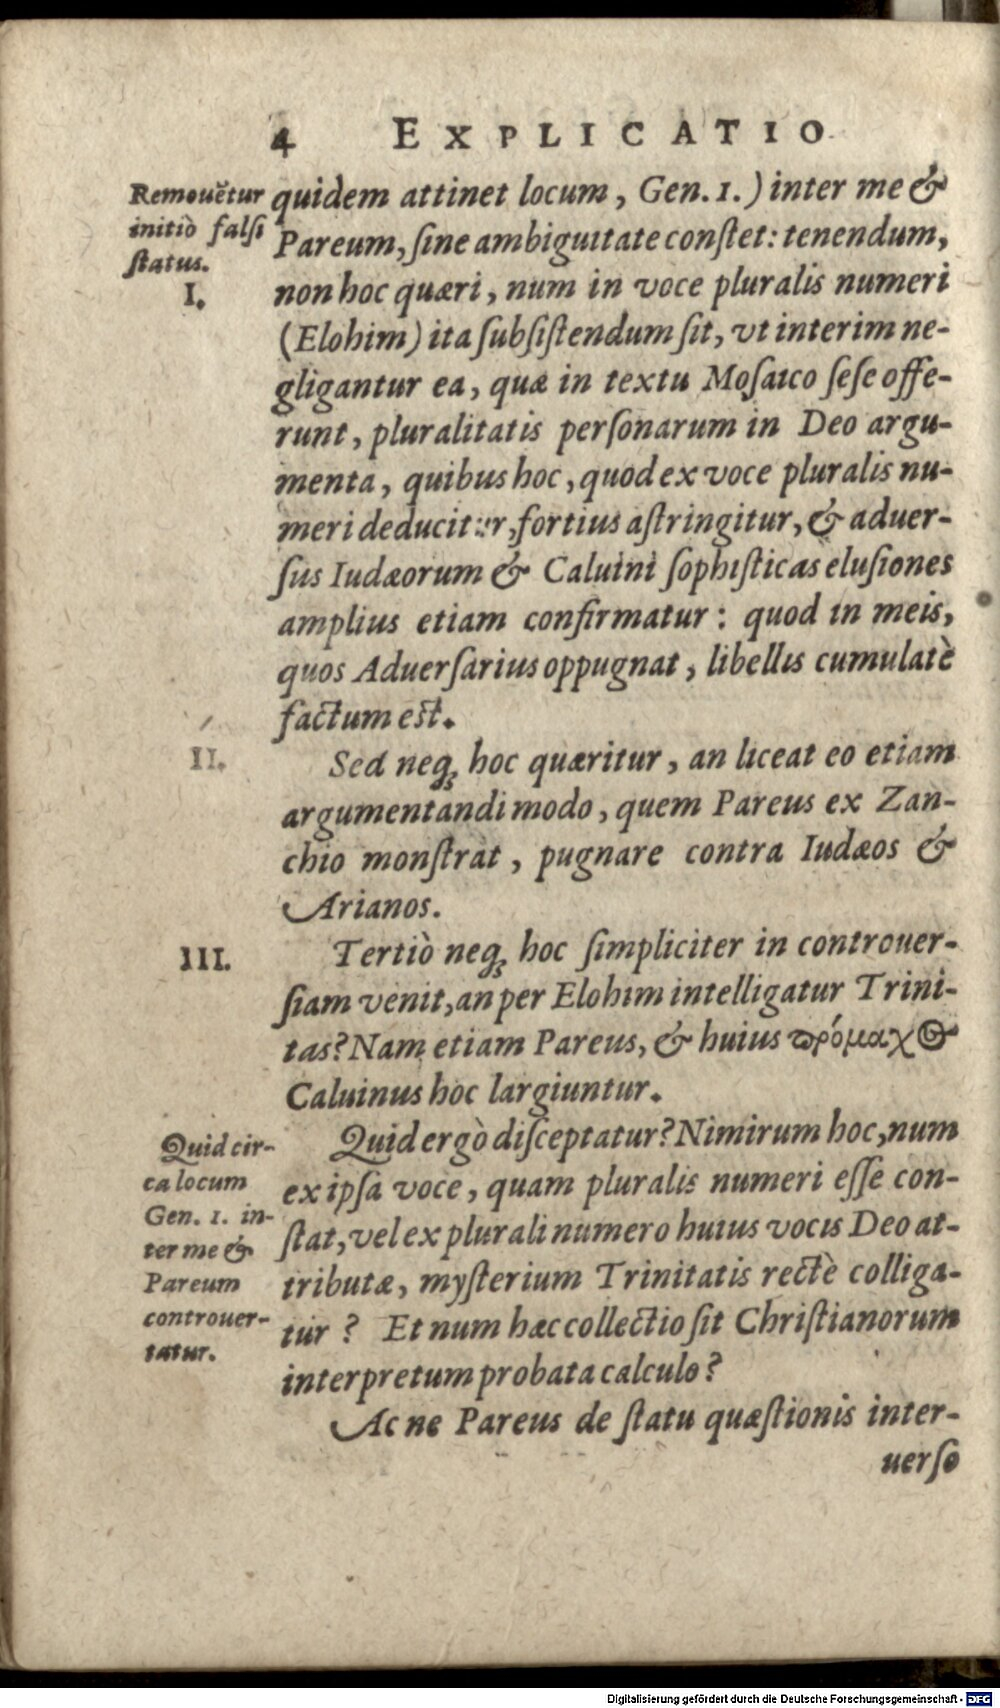 4 EXPLICATIO
Remouētur
initiò falſi
ſtatus.
I.
quidem attinet locum, Gen. 1.) inter me &
Pareum, ſine ambiguitate conſtet: tenendum,
non hoc quæri, num in voce pluralis numeri
(Elohim) ita ſubſiſtendum ſit, vt interim ne-
gligantur ea, quæ in textu Moſaico ſeſe offe-
runt, pluralitatis perſonarum in Deo argu-
menta, quibus hoc, quod ex voce pluralis nu-
meri deducitur, fortius aſtringitur, & aduer-
ſus Iudæorum & Caluini ſophiſticas eluſiones
amplius etiam confirmatur: quod in meis,
quos Aduerſarius oppugnat, libellis cumulatè
factum eſt.
II.
Sed neq; hoc quæritur, an liceat eo etiam
argumentandi modo, quem Pareus ex Zan-
chio monſtrat, pugnare contra Iudæos &
Arianos.
III.
Tertiò neq; hoc ſimpliciter in controuer-
ſiam venit, an per Elohim intelligatur Trini-
tas? Nam etiam Pareus, & huius πρόμαχος
Caluinus hoc largiuntur.
Quid cir-
ca locum
Gen. 1. in-
ter me &
Pareum
controuer-
tatur.
Quid ergò diſceptatur? Nimirum hoc, num
ex ipſa voce, quam pluralis numeri eſſe con-
ſtat, vel ex plurali numero huius vocis Deo at-
tributæ, myſterium Trinitatis rectè colliga-
tur? Et num hæc collectio ſit Chriſtianorum
interpretum probata calculo?
Ac ne Pareus de ſtatu quæſtionis inter-
uerſo
Digitalisierung gefördert durch die Deutsche Forschungsgemeinschaft - DFG